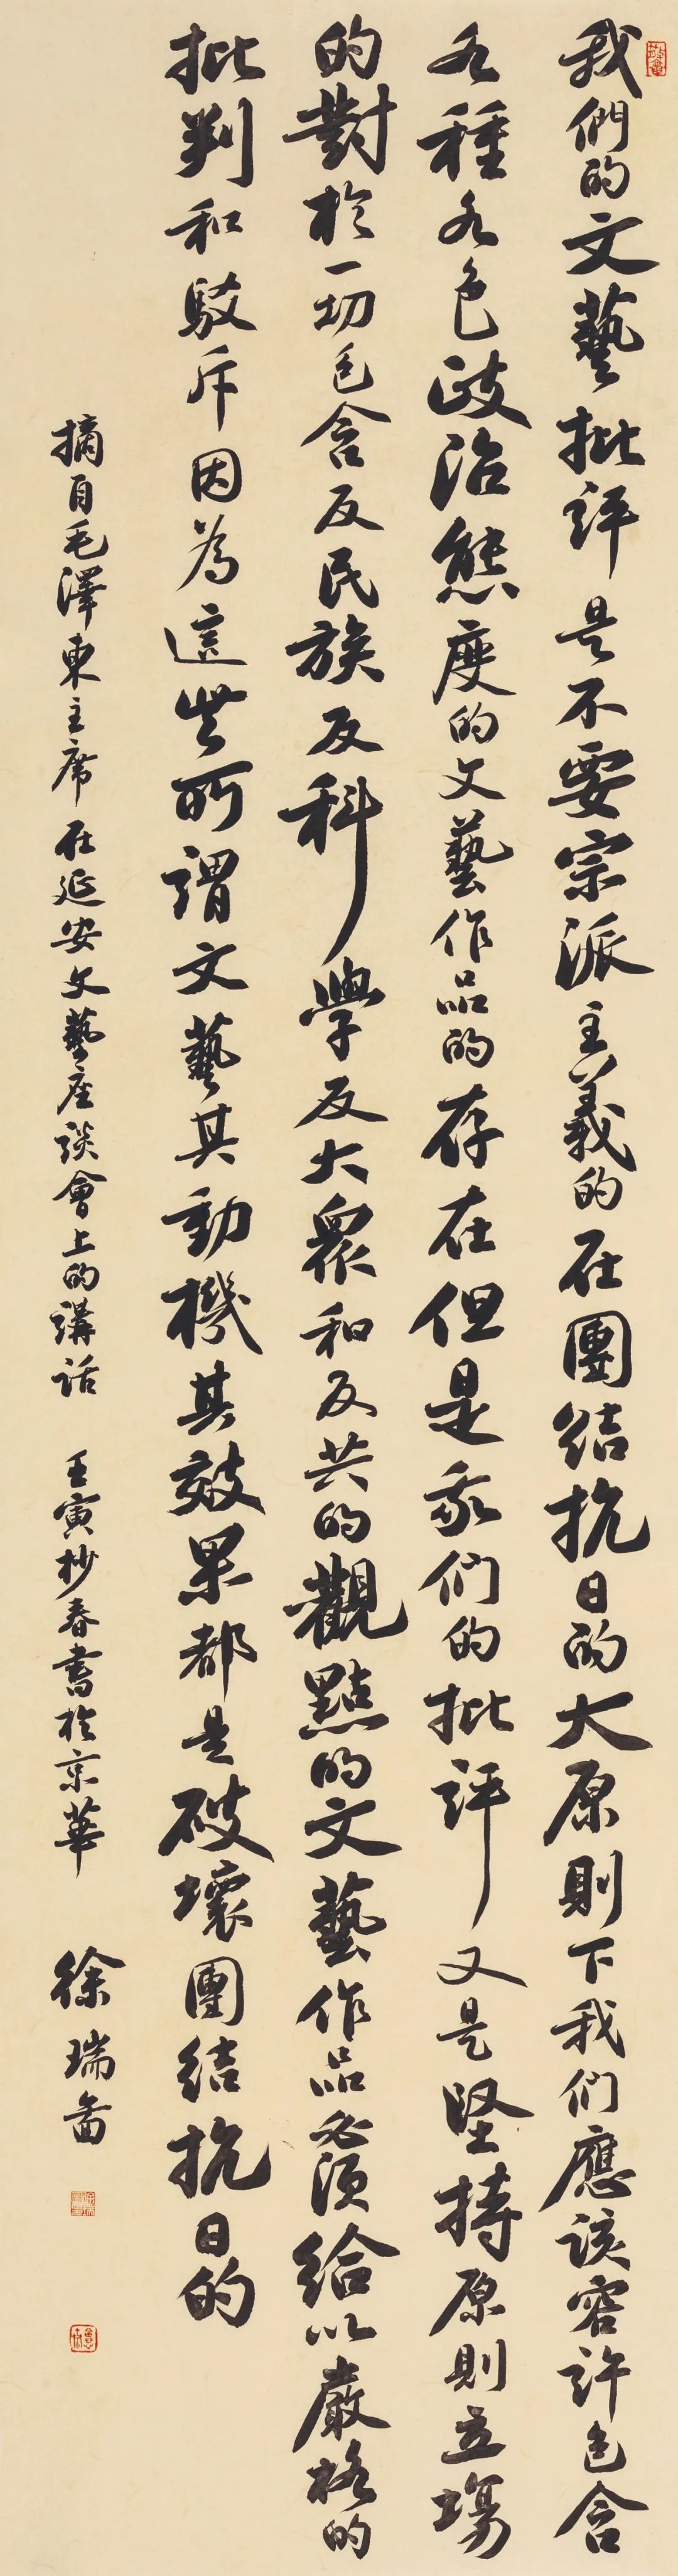 我們的文藝批評是不要宗派主義的在團結抗日的大原則下我们應該容許包含
各種各色政治態度的文藝作品的存在但是我们的批評又是堅持原則立場
的對於一切包含反民族反科學反大衆和反共的觀點的文藝作品必須給以嚴格的
批判和駁斥因為這些所謂文藝其動機其效果都是破壞團結抗日的
摘自毛澤東主席在延安文藝座談會上的講話 壬寅杪春書於京華 徐瑞